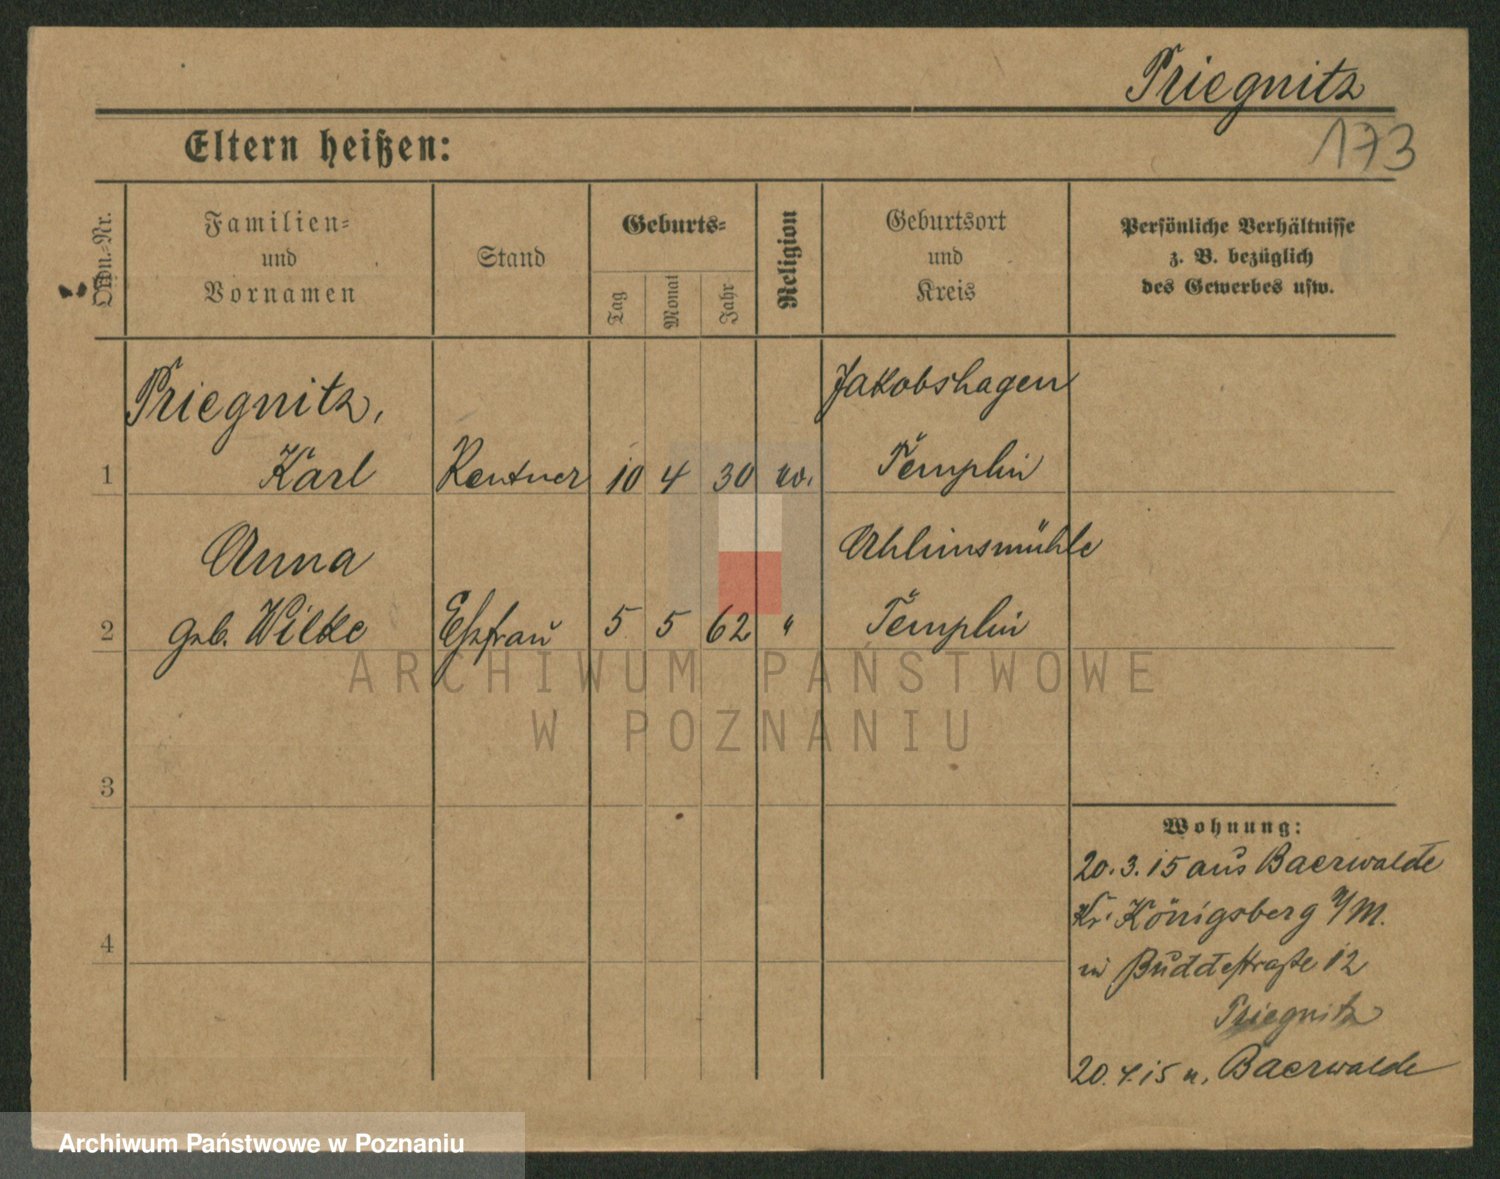 Priegnitz
173
Eltern heißen:
Ordn.-Nr.
Familien-
und
Vornamen
Stand
Geburts-
Tag
Monat
Jahr
Religion
Geburtsort
und
Kreis
Persönliche Verhältnisse
z. B. bezüglich
des Gewerbes usw.
Priegnitz,
Jakobshagen
1 Karl Rentner 10 4 30 ev. Templin
Anna
2 geb. Wilke Ehefrau 5 5 62 " Templin
ARCHIWUM PAŃSTWOWE
W POZNANIU
3
Wohnung:
20.3.15 aus Baerwalde
Kr. Königsberg N/M.
4
in Buddestraße 12
Priegnitz
20.4.15 n. Baerwalde
Archiwum Państwowe w Poznaniu